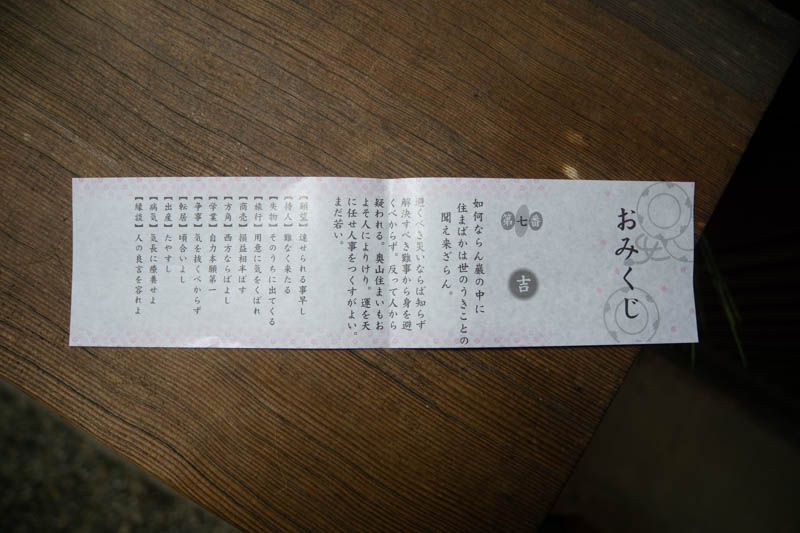 おみくじ
第七番
吉
如何ならん巌の中に
住まばかは世のうきことの
聞え来ざらん。
避くべき災いならば知らず
解決すべき難事から身を避
くべからず。反って人から
疑われる。奥山住まいもお
よそ人によりけり。運を天
に任せ人事をつくすがよい。
まだ若い。
【願望】達せられる事早し
【待人】難なく来たる
【失物】そのうちに出てくる
【旅行】用意に気をくばれ
【商売】損益相半ばす
【方角】西方ならばよし
【学業】自力本願第一
【争事】気を抜くべからず
【転居】頃合いよし
【出産】たやすし
【病気】気長に療養せよ
【縁談】人の良言を容れよ